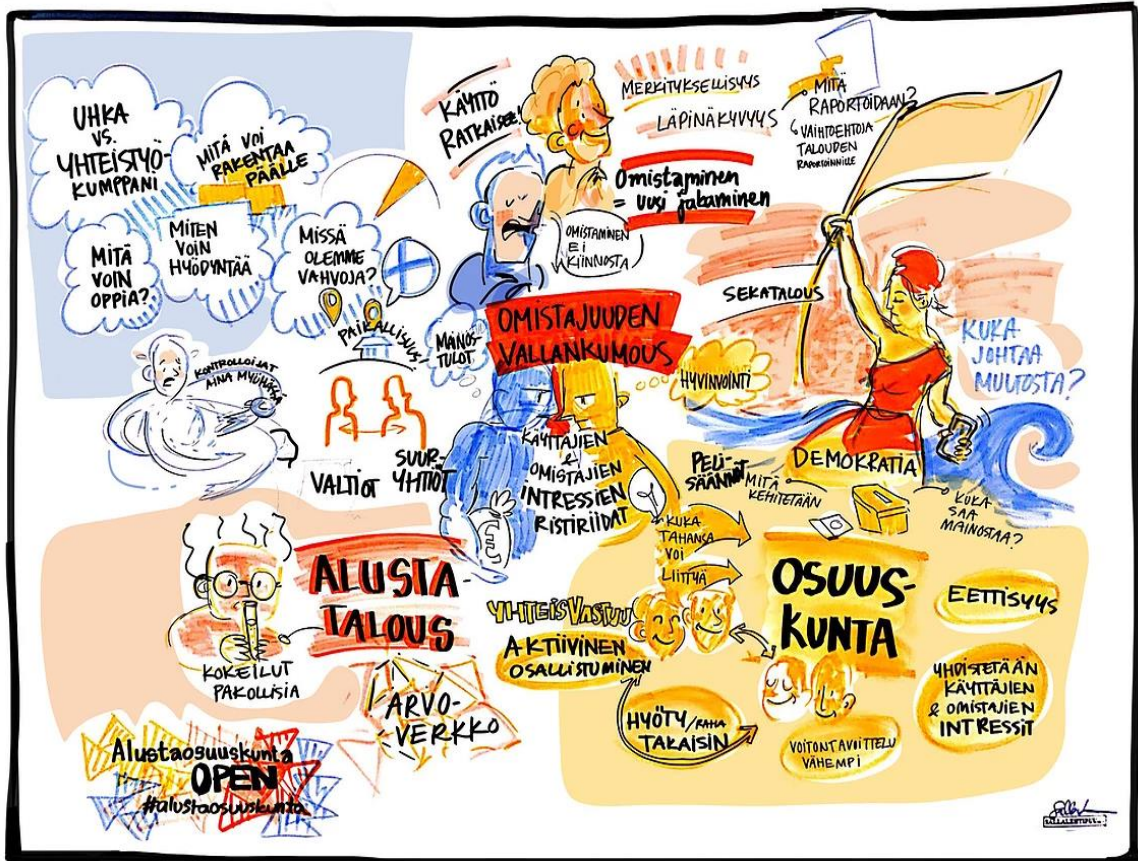 UHKA
VS.
YHTEISTYÖ-
KUMPPANI
MITÄ VOI
RAKENTAA
PÄÄLLE
MITÄ
VOIN
OPPIA?
MITEN
VOIN
HYÖDYNTÄÄ
MISSÄ
OLEMME
VAHVOJA?
PAIKALLISUUS
KONTROLLOIJAT
AINA MYÖHÄSSÄ
VALTIOT
SUUR-
YHTIÖT
MAINOS-
TULOT
KÄYTTÖ
RATKAISEE!
MERKITYKSELLISYYS
LÄPINÄKYVYYS
Omistaminen
= uusi jakaminen
OMISTAMINEN
EI
KIINNOSTA
MITÄ
RAPORTOIDAAN?
VAIHTOEHTOJA
TALOUDEN
RAPORTOINNILLE
OMISTAJUUDEN
VALLANKUMOUS
SEKATALOUS
HYVINVOINTI
KUKA
JOHTAA
MUUTOSTA?
KÄYTTÄJIEN
&
OMISTAJIEN
INTRESSIEN
RISTIRIIDAT
PELI-
SÄÄNNÖT
MITÄ
KEHITETÄÄN
DEMOKRATIA
KUKA
SAA
MAINOSTAA?
KUKA
TAHANSA
VOI
LIITTYÄ
ALUSTA-
TALOUS
KOKEILUT
PAKOLLISIA
ARVO-
VERKKO
YHTEISVASTUU
AKTIIVINEN
OSALLISTUMINEN
HYÖTY/RAHA
TAKAISIN
OSUUS-
KUNTA
EETTISYYS
YHDISTETÄÄN
KÄYTTÄJIEN
& OMISTAJIEN
INTRESSIT
VOITONTAVOITTELU
VÄHEMPI
Alustaosuuskunta
OPEN
#alustaosuuskunta